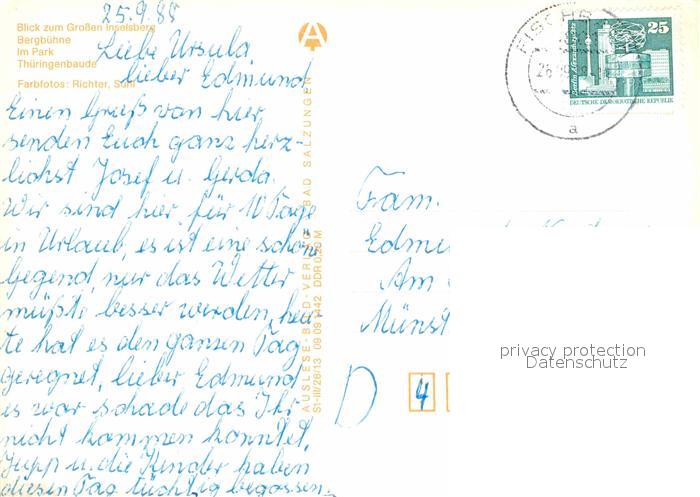 25.9.88
Blick zum Großen Inselsberg
Bergbühne
Im Park
Thüringenbaude
Farbfotos: Richter, Suhl
Liebe Ursula
lieber Edmund
Einen Gruß von hier
senden Euch ganz herz-
lichst Josef u. Gerda.
Wir sind hier für 10 Tage
in Urlaub, es ist eine schöne
Gegend, nur das Wetter
müßte besser werden, heu-
te hat es den ganzen Tag
geregnet, lieber Edmund
es war schade das Ihr
nicht kommen konntet,
Jupp u. die Kinder haben
diesen Tag tüchtig begossen.
AUSLESE-BILD-VERLAG BAD SALZUNGEN
S1-III/26/13 09 09 1442 DDR 0,20 M
FISCHB
26
a
25
DEUTSCHE DEMOKRATISCHE REPUBLIK
Fam.
Edmu
Am
Münst
D 4
privacy protection
Datenschutz